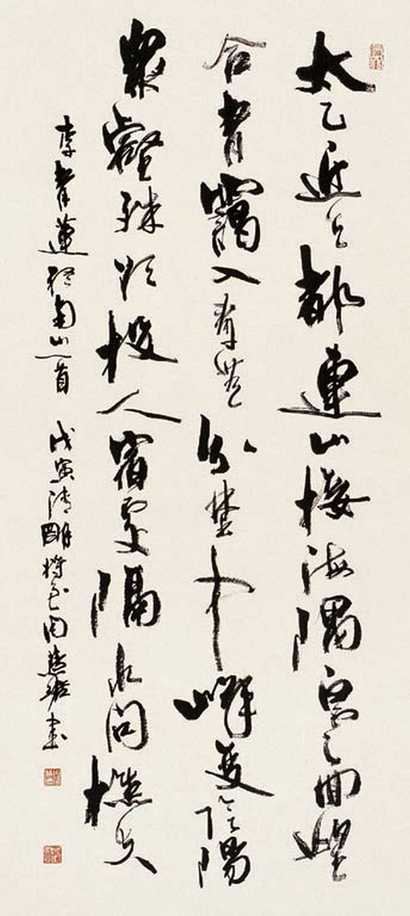 太乙近天都連山接海隅白雲回望
合青靄入看無分埜中峰變陰陽
衆壑殊欲投人宿處隔水問樵夫
李青蓮終南山一首 戊寅清明將至周慧珺書